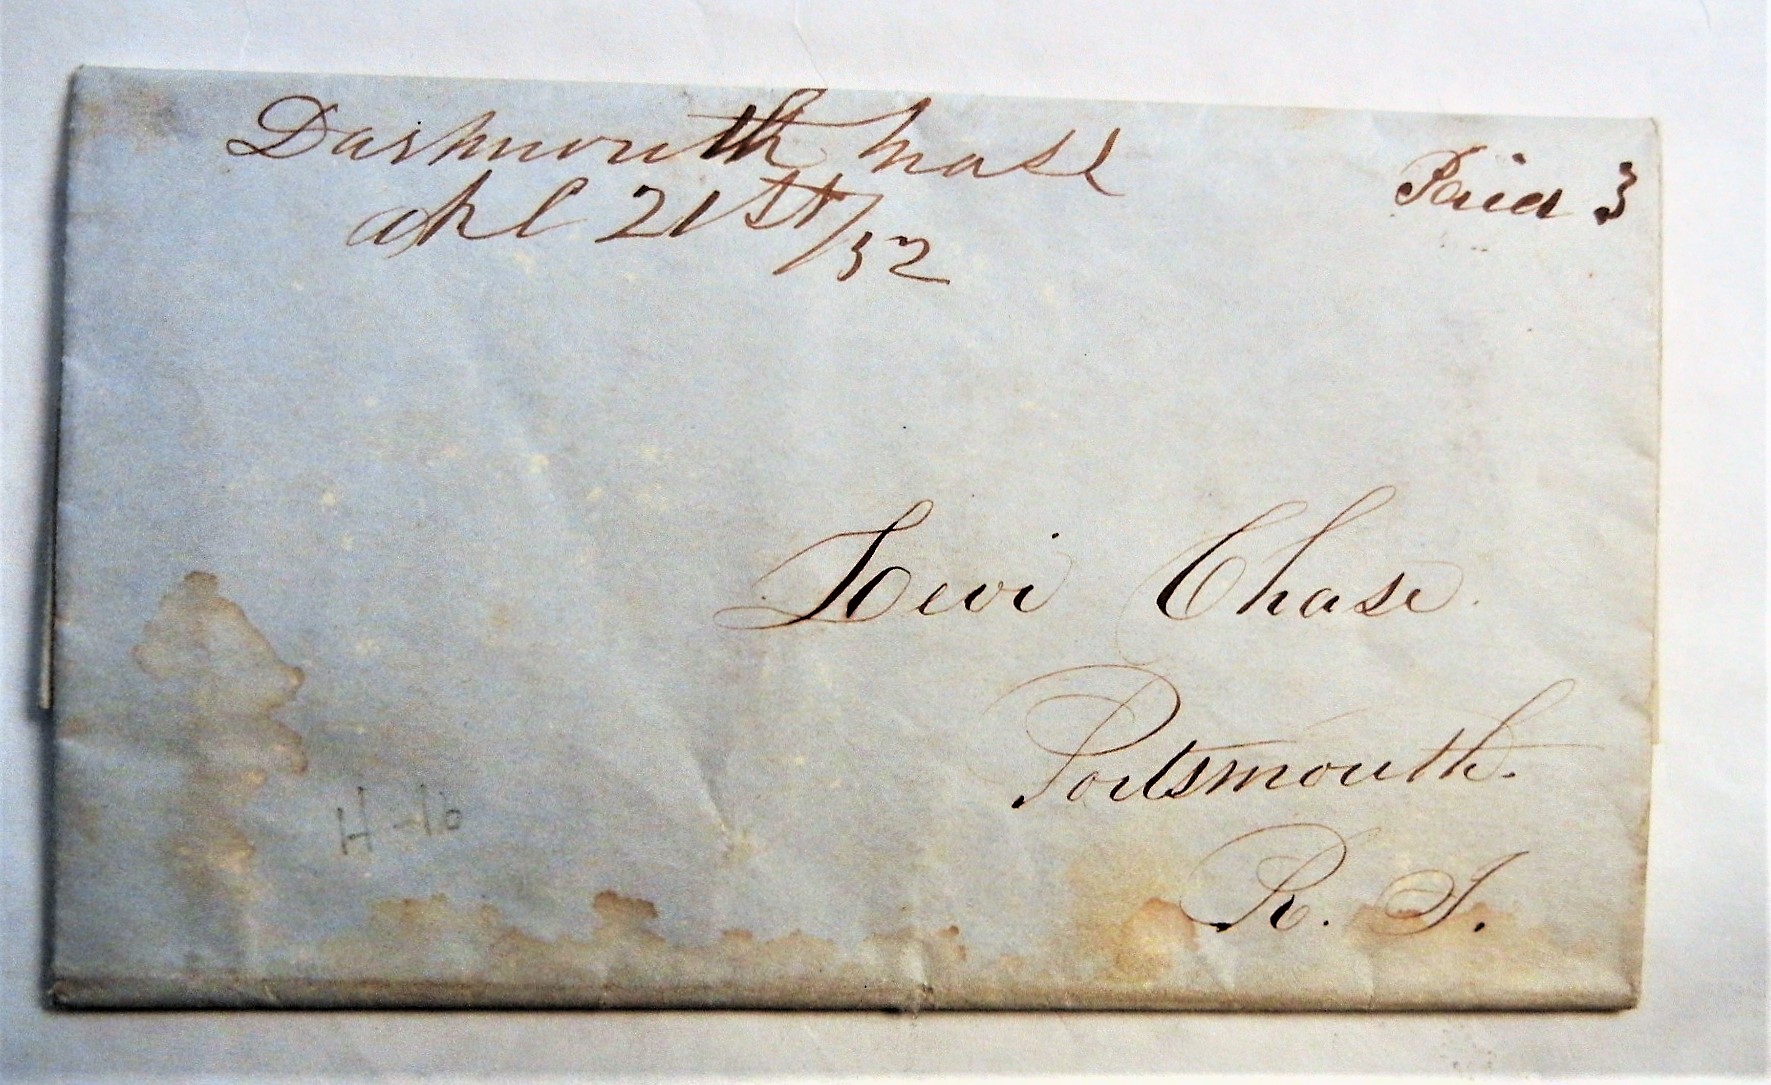 Dartmouth Mass
Apl 21st/52
Paid 3
Levi Chase
Portsmouth.
R. I.
H-16